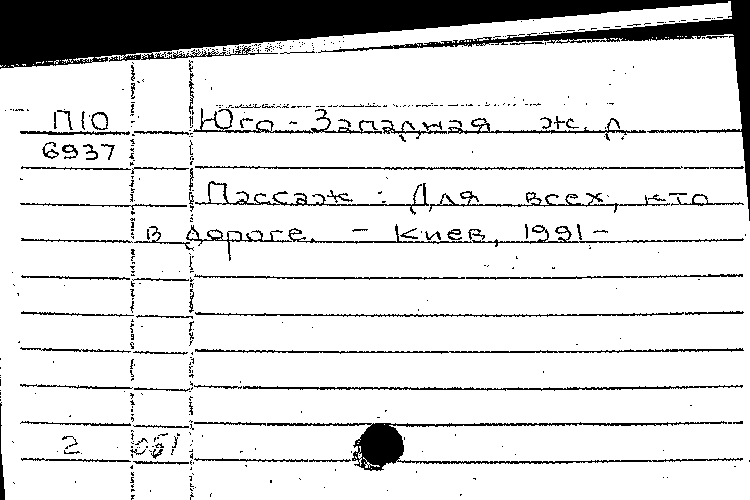 П10 Юго-Западная ж.д
6937
Пассаж : Для всех, кто
в дороге. - Киев, 1991-
2 обl